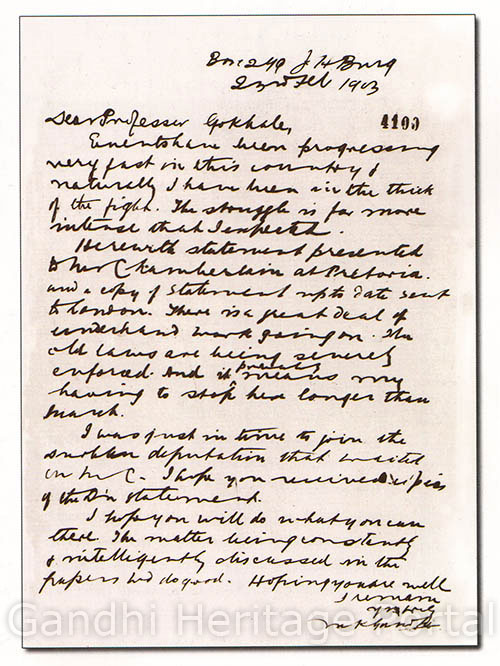 Box 2 49 J H Burg
23rd Feb 1903
Dear Professor Gokhale,
4100
Events have been progressing
very fast in this country &
naturally I have been in the thick
of the fight. The struggle is far more
intense that I expected.
Herewith statement presented
to Mr Chamberlain at Pretoria.
and a copy of statement up to date sent
to London. There is a great deal of
underhand work going on. The
old laws are being severely
enforced. And it probably means my
having to stop here longer than
March.
I was just in time to join the
deputation that waited
on Mr C. I hope you received copies
of the statement.
I hope you will do what you can
there. The matter being constantly
& intelligently discussed in the
papers wd do good. Hoping you are well
I remain
yours truly
M K Gandhi
Gandhi Heritage Portal